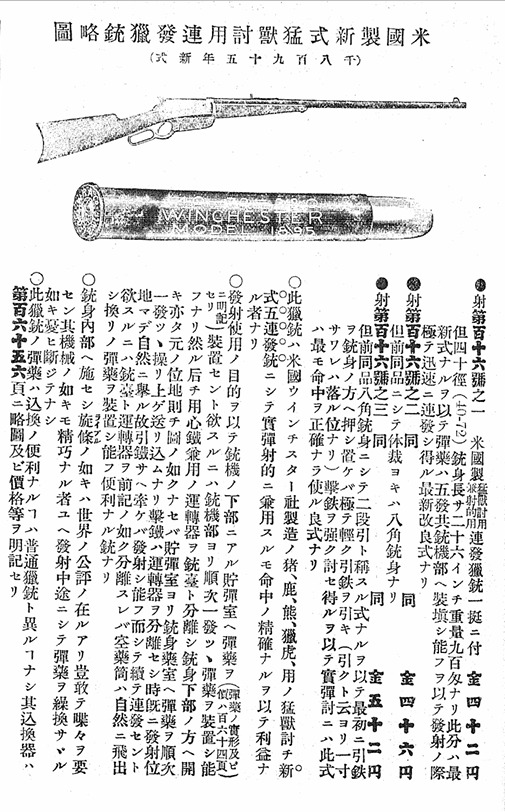 米國製新式猛獸討用連發獵銃略圖
(千八百九十五年新式)
WINCHESTER
MODEL 1895
●射第百十六號之一 米國製猛獸討用兼射的用連發獵銃一挺ニ付 金四十二円
但四十徑(40-72)銃身長サ二十六インチ重量九百匁ナリ此分ハ最
新式ナルヲ以テ彈藥ハ五發共銃機部ヘ裝填シ能フヲ以テ發射ノ際
極テ迅速ニ連發シ得ル最新改良式ナリ
●射第百十六號之二 同 同 金四十六円
但前同品ニシテ体裁ヨキハ八角銃身ナリ
●射第百十六號之三 同 同 金五十二円
但前同品八角銃身ニシテ二段引ト稱スル式ナルヲ以テ最初ニ引鉄
ヲ銃身ノ方ヘ押シ置ケバ極テ輕ク引鉄ヲ引キ(引クト云ヨリ一寸
サワレハ落ル位ナリ)擊鉄ヲ强ク討セ得ルヲ以テ實彈討ニハ此式
ハ最モ命中ヲ正確ナラ使ル良式ナリ
○此獵銃ハ米國ウインチスター社製造ノ猪、鹿、熊、獵虎、用ノ猛獸討チ新
式五連發銃ニシテ實彈射的ニ兼用スルモ命中ノ精確ナルヲ以テ利益ナ
ル者ナリ
○發射使用ノ目的ヲ以テ銃機ノ下部ニアル貯彈室ヘ彈藥ヲ(彈藥ノ實形及ビ價ハ百六十四頁
ニ明記セリ)裝置セント欲スルニハ銃機部ヨリ順次一發ツヽ彈藥ヲ裝置シ能
フナリ然ル后チ用心鐵兼用ノ運轉器ヲ銃臺ト分離シ銃身下部ノ方ヘ開
キ亦タ元ノ位地則チ圖ノ如クナセバ貯彈室ヨリ銃身藥室ヘ彈藥ヲ順次
一發ツヽ操リ上ゲ送リ込ムナリ擊鐵ハ運轉器ヲ分離セシ時旣ニ發射位
地マデ自然ニ擧ル故引鐵サヘ牽ケバ發射シ能フ而シテ續テ連發セント
欲スルニハ銃臺ト運轉器ヲ前記ノ如ク分離スレバ空藥筒ハ自然ニ飛出
シ換リノ彈藥ヲ裝置シ能フ便利ナル銃ナリ
○銃身內部ヘ施セシ旋條ノ如キハ世界ノ公評ノ在ルアリ豈敢テ喋々ヲ要
セン其機械ノ如キモ精巧ナル者ユヘ發射中途ニシテ彈藥ヲ繰換サヾル
如キ憂ヒ斷ジテナシ
○此獵銃ノ彈藥ハ込換ノ便利ナルヿハ普通獵銃ト異ルヿナシ其込換器ハ
第百六十五六頁ニ略圖及ビ價格等ヲ明記セリ